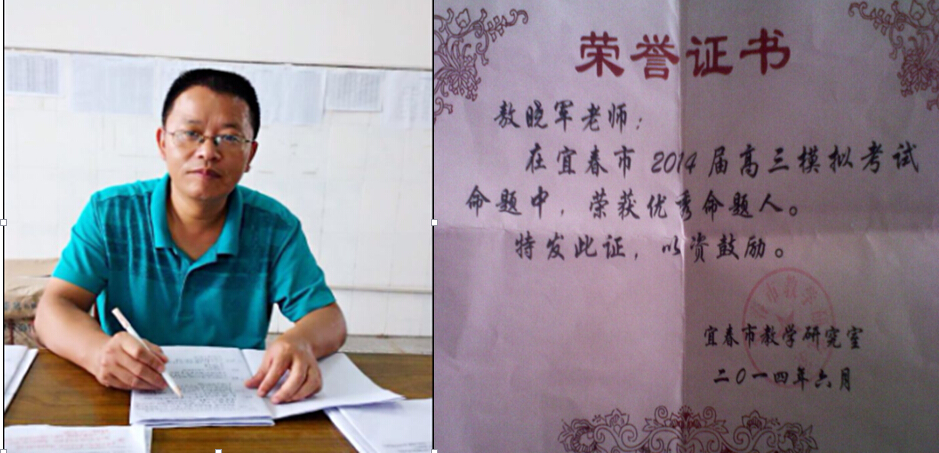 荣誉证书
敖晓军老师：
在宜春市 2014 届高三模拟考试
命题中，荣获优秀命题人。
特发此证，以资鼓励。
宜春市教学研究室
二〇一四年六月